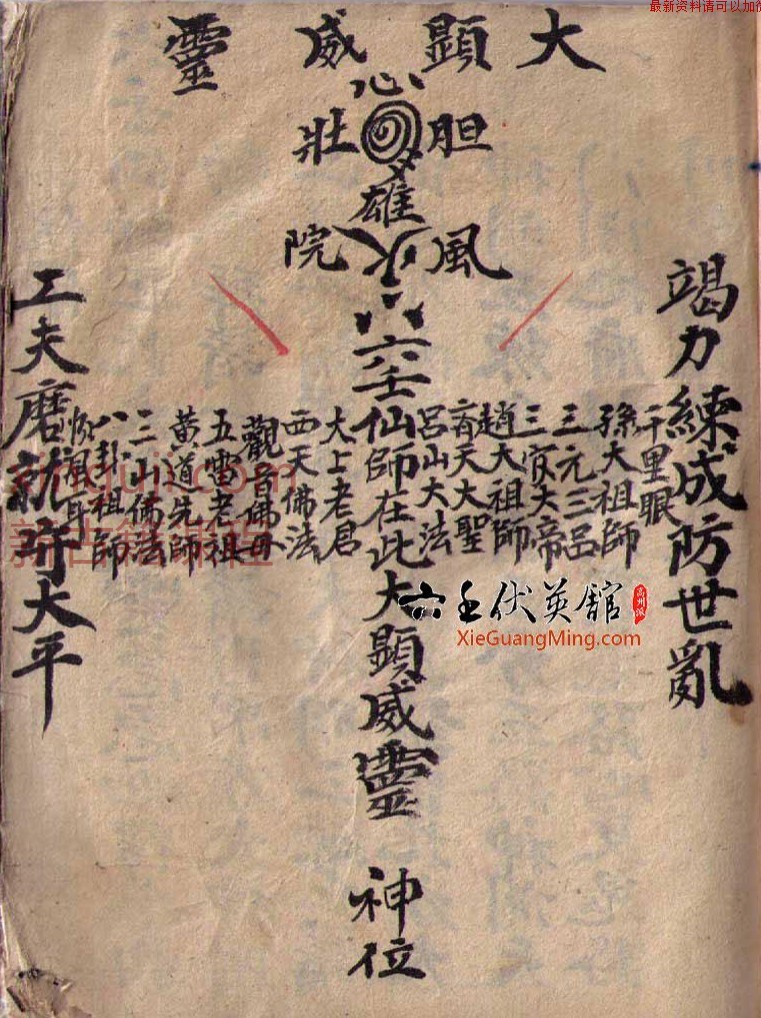 最新资料请可以加微
大顯威靈
心
胆壯
雄
風院
竭力練成防世亂
千里眼
孫大祖師
三元三品
三官大帝
趙大祖師
斉天大聖
呂山大法
六壬仙師在此大顯威靈 神位
大上老君
西天佛法
觀音佛母
五雷老祖
黄道先師
三山佛法
八卦祖師
順風耳
工夫磨就許大平
六壬伏英舘
高州派
XieGuangMing.com